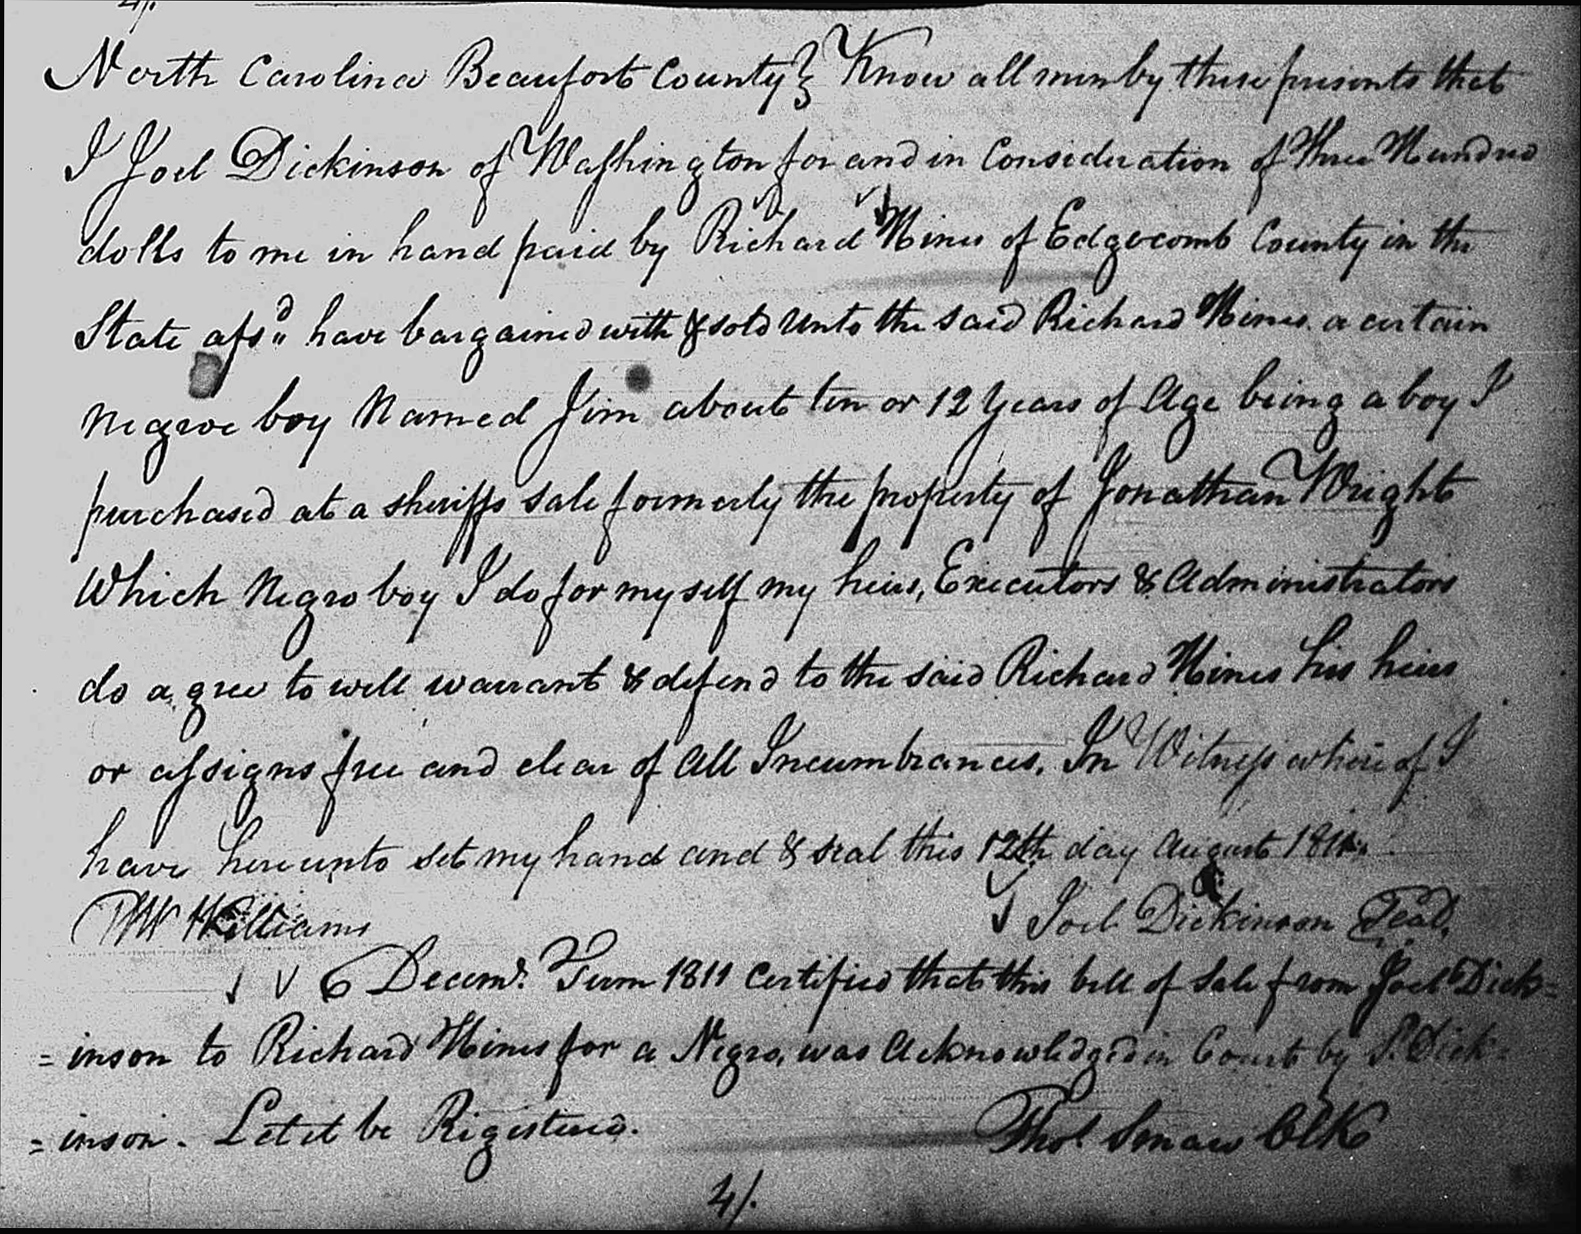 4/.
North Carolina Beaufort County } Know all men by these presents that
I Joel Dickinson of Washington for and in Consideration of Three Hundred
dolls to me in hand paid by Richard Hines of Edgecomb County in the
State afsd have bargained with & sold unto the said Richard Hines a certain
Negroe boy Named Jim about ten or 12 Years of Age being a boy I
purchased at a sheriffs sale formerly the property of Jonathan Wright
Which Negro boy I do for myself my heirs, Executors & Administrators
do agree to well warrant & defend to the said Richard Hines his heirs
or assigns free and clear of all Incumbrances. In Witness where of I
have hereunto set my hand and & seal this 12th day August 1811
Williams
Joel Dickinson Seal
Decemr. Term 1811 Certified that this bill of Sale from Joel Dick=
=inson to Richard Hines for a Negro, was Acknowledged in Court by J. Dick=
=inson. Let it be Registered.
Thos. Smaw Clk
4/.